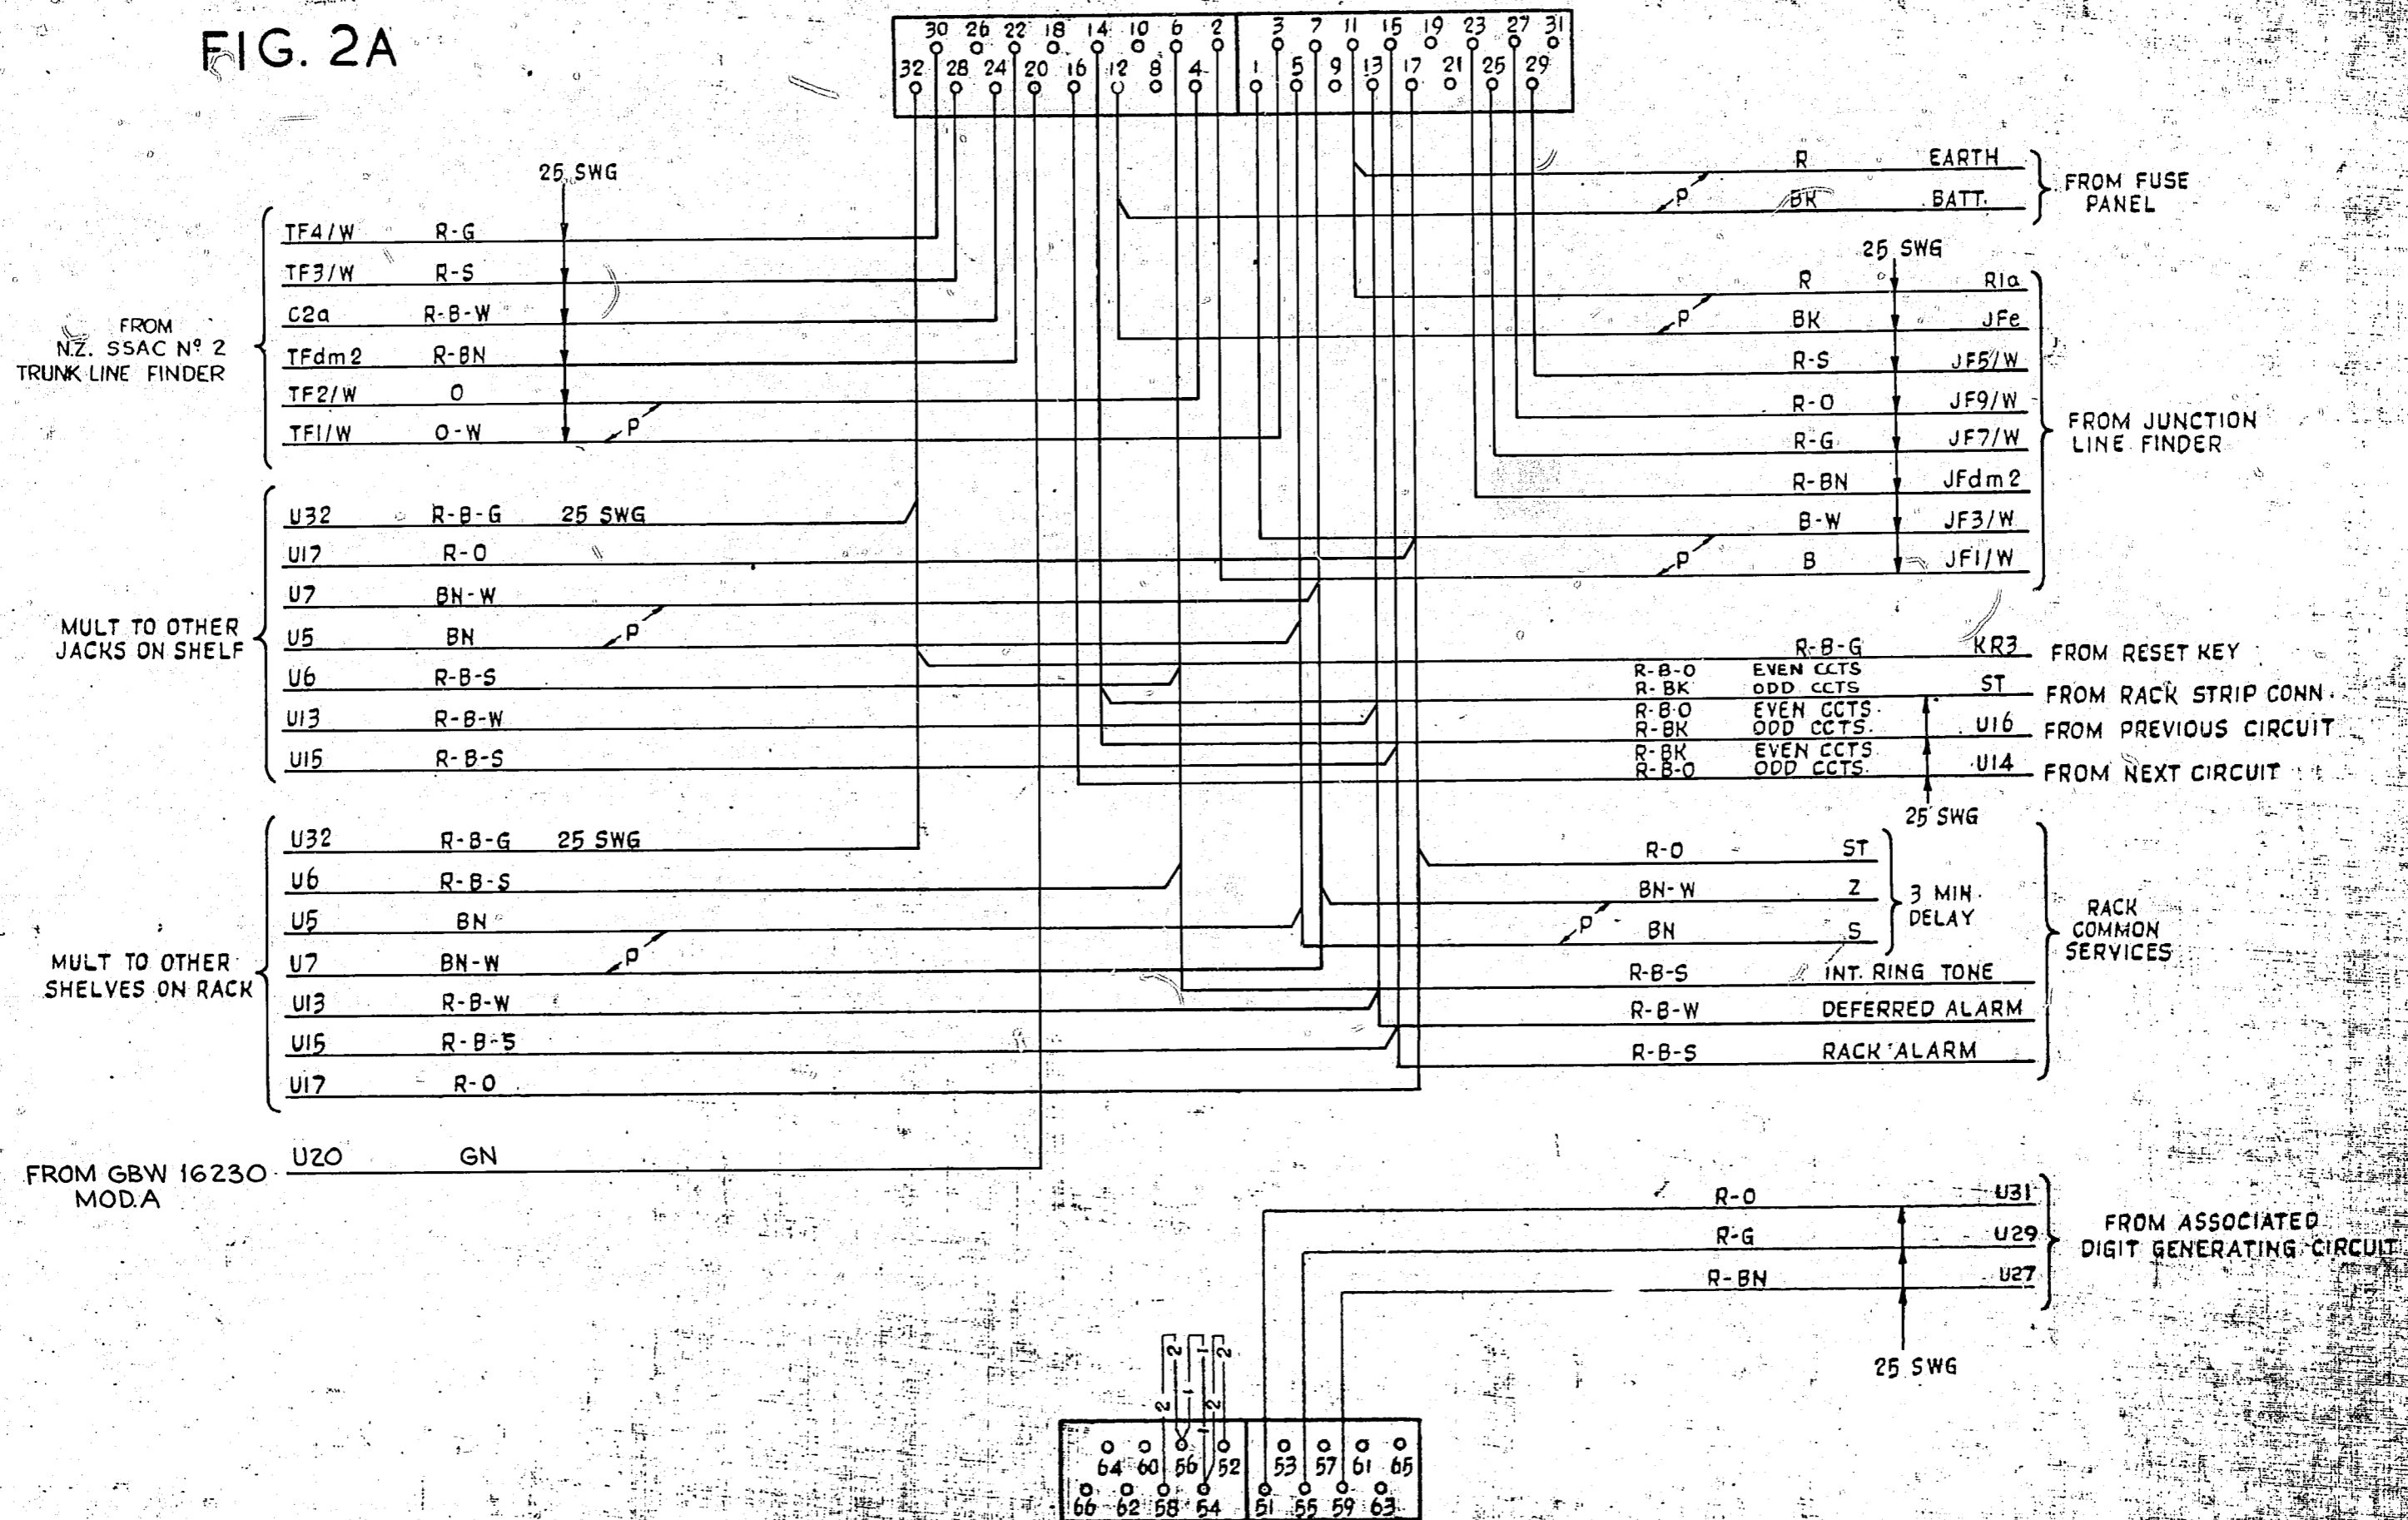 FIG. 2A
30 26 22 18 14 10 6 2 3 7 11 15 19 23 27 31
32 28 24 20 16 12 8 4 1 5 9 13 17 21 25 29
25 SWG
TF4/W R-G
TF3/W R-S
C2a R-B-W
TFdm2 R-BN
TF2/W O
TF1/W O-W
P
FROM
N.Z. SSAC Nº 2
TRUNK LINE FINDER
U32 R-B-G 25 SWG
U17 R-O
U7 BN-W
U5 BN
P
U6 R-B-S
U13 R-B-W
U15 R-B-S
MULT TO OTHER
JACKS ON SHELF
U32 R-B-G 25 SWG
U6 R-B-S
U5 BN
U7 BN-W
P
U13 R-B-W
U15 R-B-S
U17 R-O
MULT TO OTHER
SHELVES ON RACK
U20 GN
FROM GBW 16230
MOD.A
R EARTH
P
BK BATT.
FROM FUSE
PANEL
25 SWG
R R1a
P
BK JFe
R-S JF5/W
R-O JF9/W
R-G JF7/W
R-BN JFdm2
B-W JF3/W
P
B JF1/W
FROM JUNCTION
LINE FINDER
R-B-G KR3 FROM RESET KEY
R-B-O EVEN CCTS
R-BK ODD CCTS ST FROM RACK STRIP CONN.
R-B-O EVEN CCTS.
R-BK ODD CCTS. U16 FROM PREVIOUS CIRCUIT
R-BK EVEN CCTS.
R-B-O ODD CCTS. U14 FROM NEXT CIRCUIT
25 SWG
R-O ST
BN-W Z
P
BN S
3 MIN.
DELAY
R-B-S INT. RING TONE
R-B-W DEFERRED ALARM
R-B-S RACK ALARM
RACK
COMMON
SERVICES
R-O U31
R-G U29
R-BN U27
FROM ASSOCIATED
DIGIT GENERATING CIRCUIT
25 SWG
2 1 2
2 1 2
1
64 60 56 52 53 57 61 65
66 62 58 54 51 55 59 63